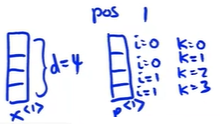 pos 1
d=4
i=0 k=0
i=0 k=1
i=1 k=2
i=1 k=3
x<1> p<1>